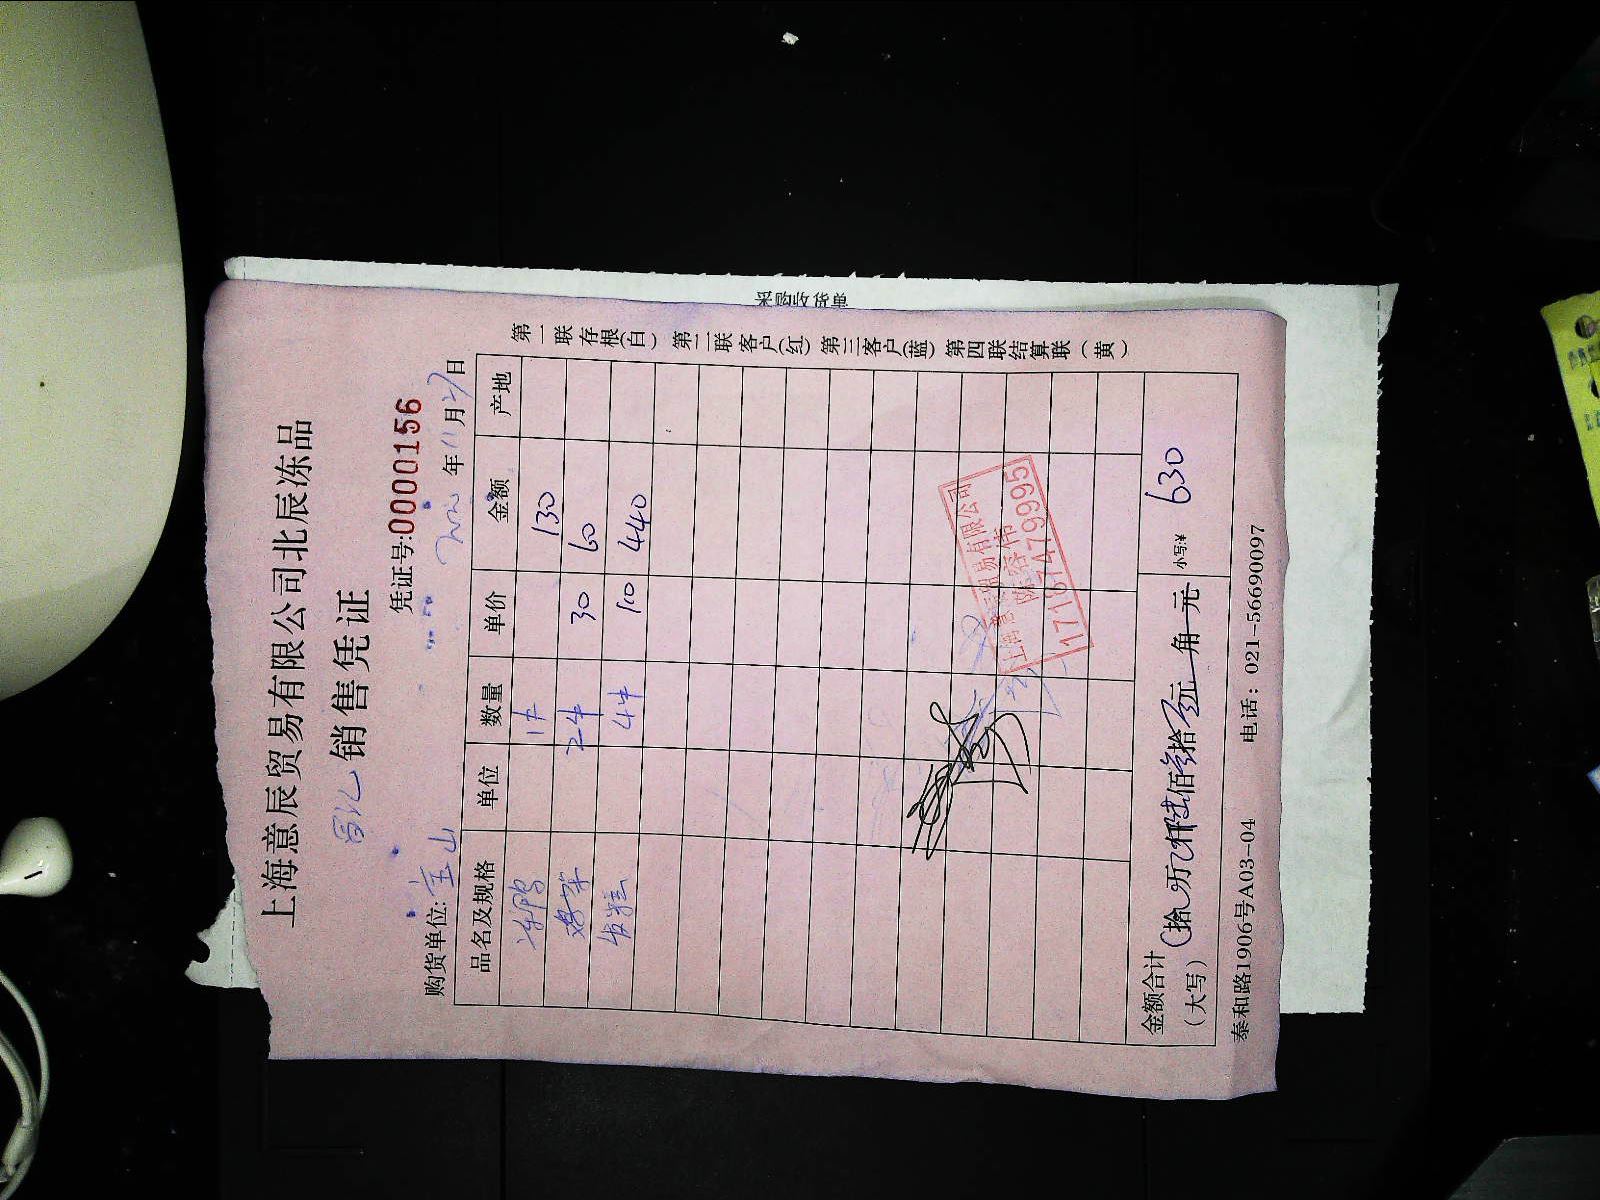 采购收货单
上海意辰贸易有限公司北辰冻品
销售凭证
凭证号:0000156
购货单位:宝山 年11月27日
品名及规格 单位 数量 单价 金额 产地
1件 130
2件 30 60
4件 110 440
上海意辰贸易有限公司
17187479995
金额合计
(大写) 拾 万 仟陆佰叁拾 元 角 元 小写:¥ 630
泰和路1906号A03-04 电话: 021-56690097
第一联存根(白) 第二联客户(红) 第三客户(蓝) 第四联结算联(黄)